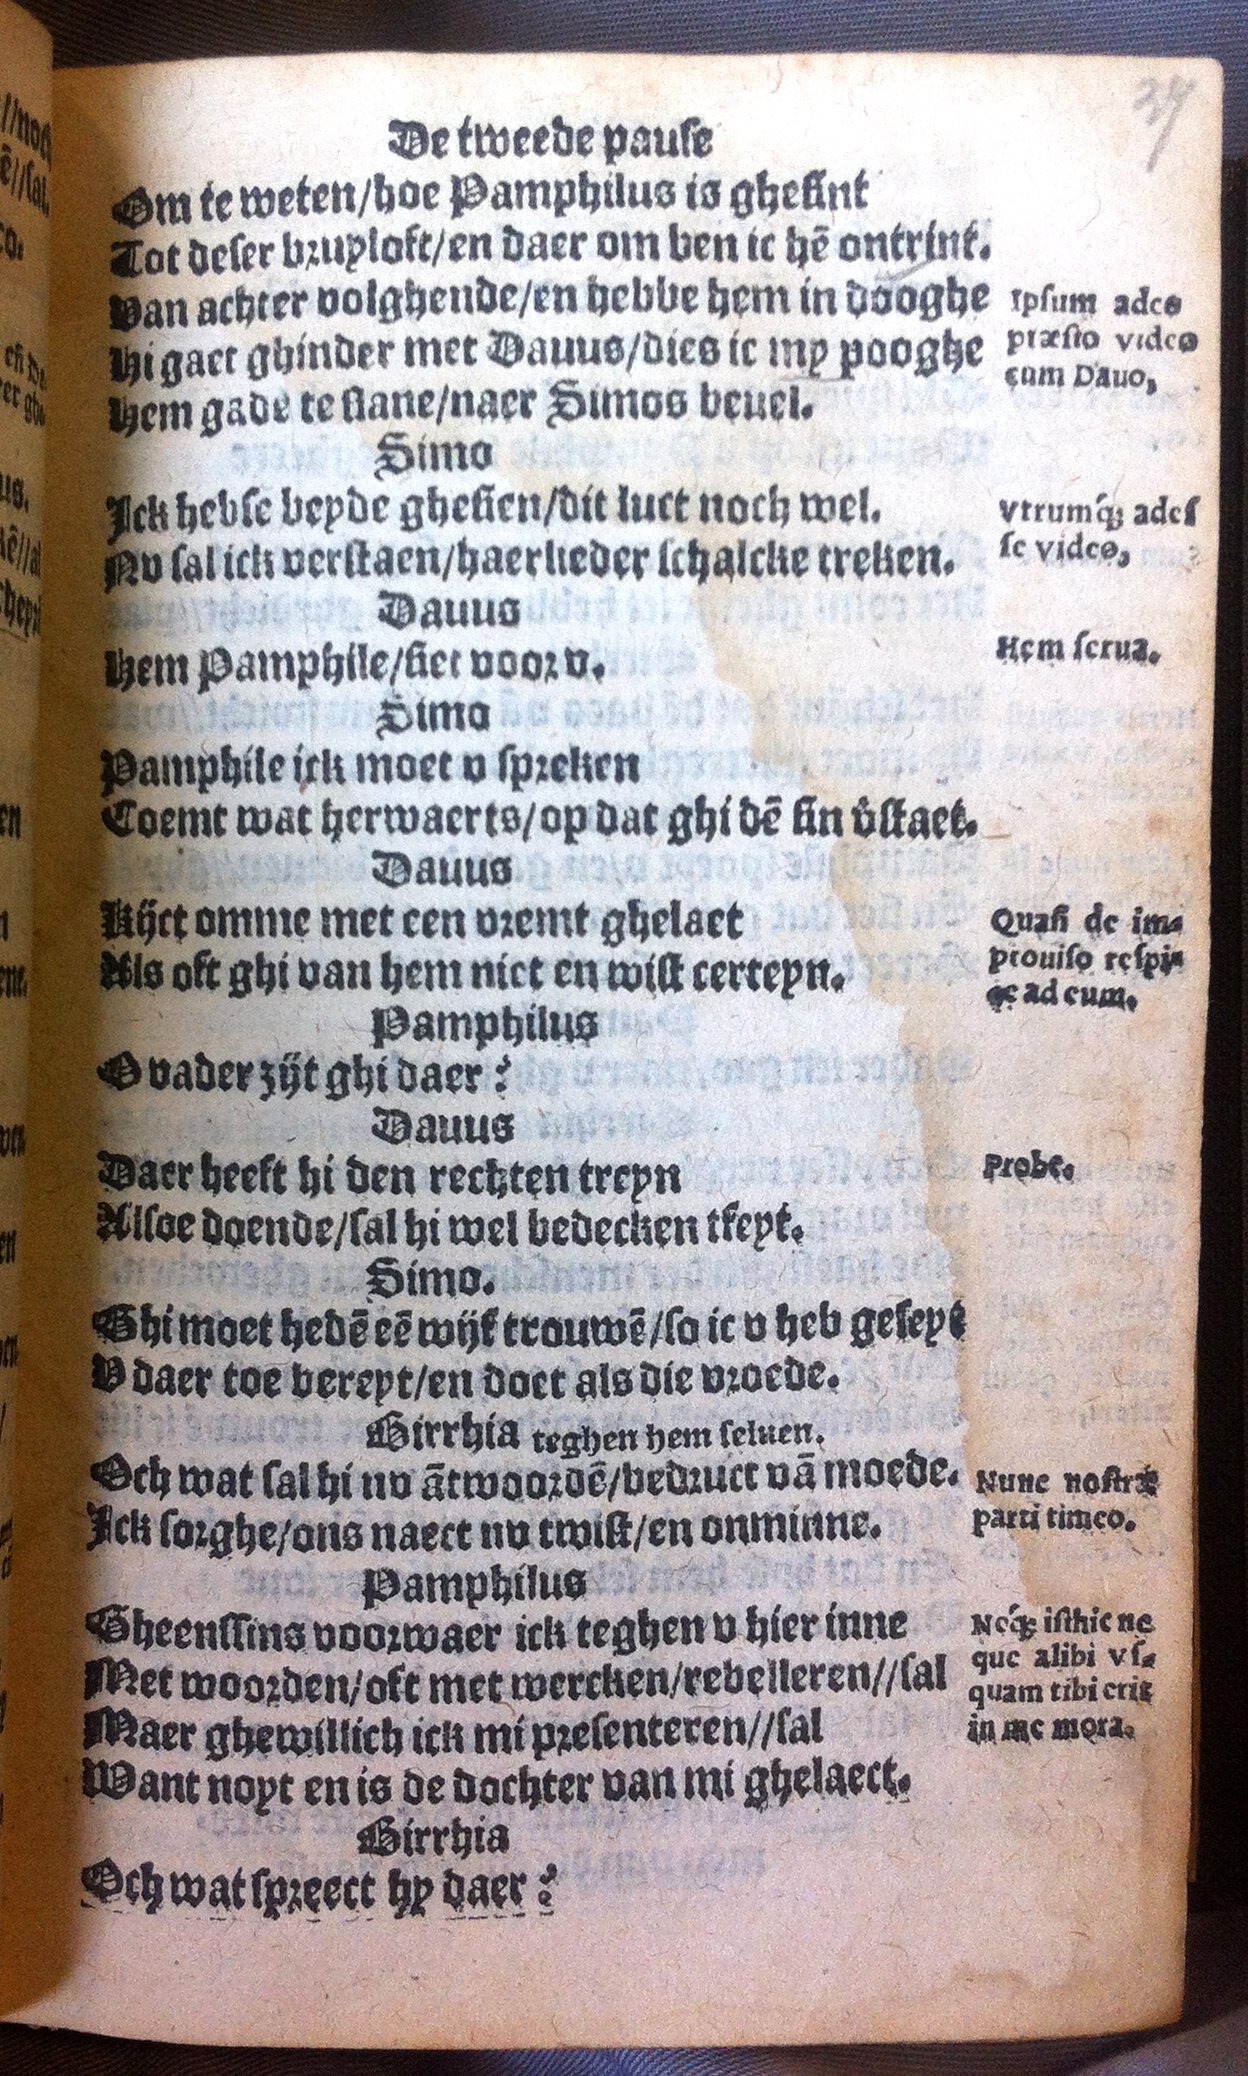 37
De tweede pause
Om te weten/hoe Pamphilus is ghesint
Tot deser bruyloft/en daer om ben ic hē ontrint.
Van achter volghende/en hebbe hem in dooghe
Hi gaet ghinder met Dauus/dies ic my pooghe
Hem gade te slane/naer Simos beuel.
Ipsum adeo
præsto video
cum Dauo,
Simo
Ick hebse beyde ghesien/dit luct noch wel.
Nv sal ick verstaen/haerlieder schalcke treken.
Vtrumq; ades
se video,
Dauus
Hem Pamphile/siet voor v.
Hem serua.
Simo
Pamphile ick moet v spreken
Coemt wat herwaerts/op dat ghi dē sin v̄staet.
Dauus
Kijct omme met een vremt ghelaet
Als oft ghi van hem niet en wist certeyn.
Quasi de im-
prouiso respi-
ce ad eum.
Pamphilus
O vader zijt ghi daer?
Dauus
Daer heeft hi den rechten treyn
Alsoe doende/sal hi wel bedecken tfeyt.
Probe.
Simo.
Ghi moet hedē eē wijf trouwē/so ic v heb geseyt
V daer toe bereyt/en doet als die vroede.
Birrhia teghen hem seluen.
Och wat sal hi nv ātwoordē/bedruct vā moede.
Ick sorghe/ons naect nv twist/en onminne.
Nunc nostræ
parti timeo.
Pamphilus
Gheenssins voorwaer ick teghen v hier inne
Met woorden/oft met wercken/rebelleren//sal
Maer ghewillich ick mi presenteren//sal
Want noyt en is de dochter van mi ghelaect.
Neq; isthic ne
que alibi vs-
quam tibi erit
in me mora.
Birrhia
Och wat spreect hy daer?